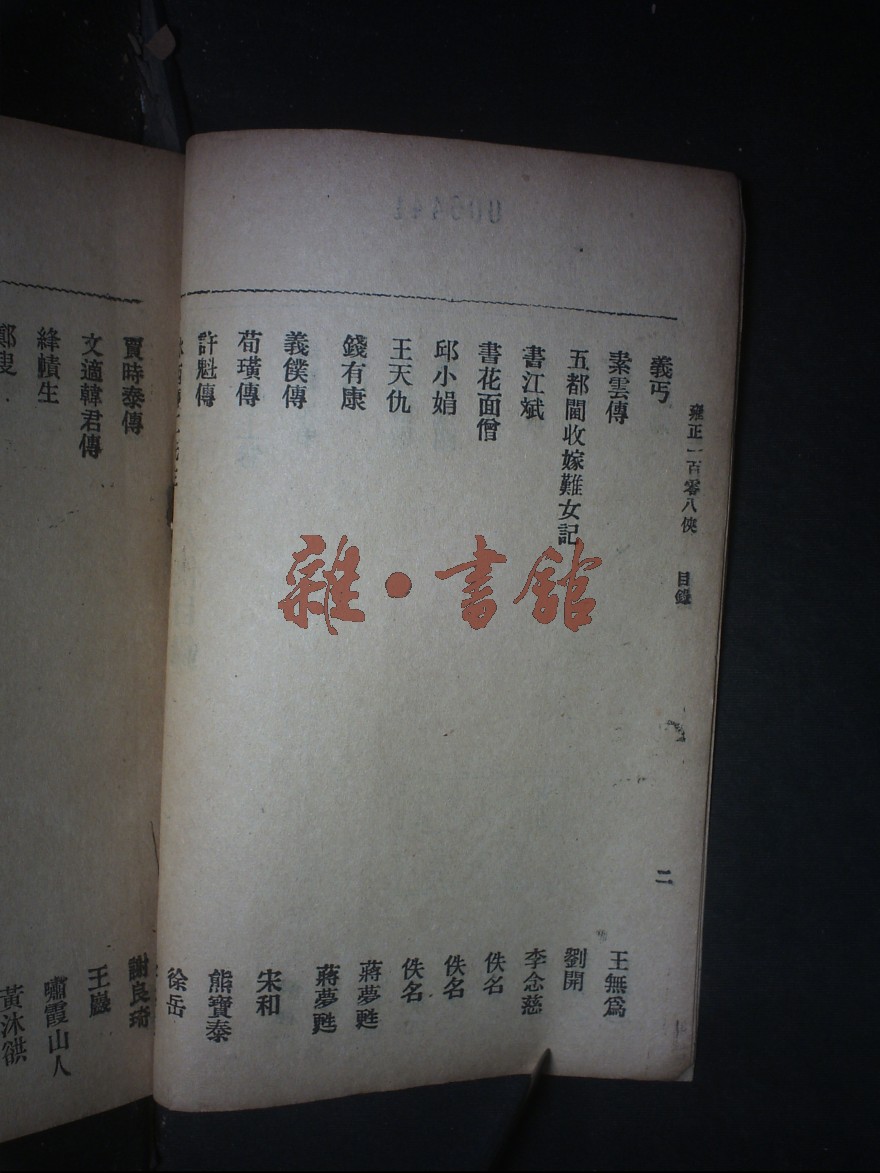 雍正一百零八俠 目錄 二
義丐 王無為
素雲傳 劉開
五都閫收嫁難女記 李念慈
書江斌 佚名
書花面僧 佚名
邱小娟 佚名
王天仇 蔣夢甦
錢有康 蔣夢甦
義僕傳 宋和
荀璜傳 熊寶泰
許魁傳 徐岳
賈時泰傳 謝良琦
文適韓君傳 王巖
絳幘生 嘯霞山人
鄭叟 黃沐
雜·書館